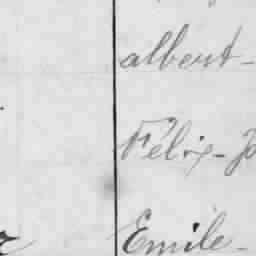 albert-
Félix-Jo
Emile-